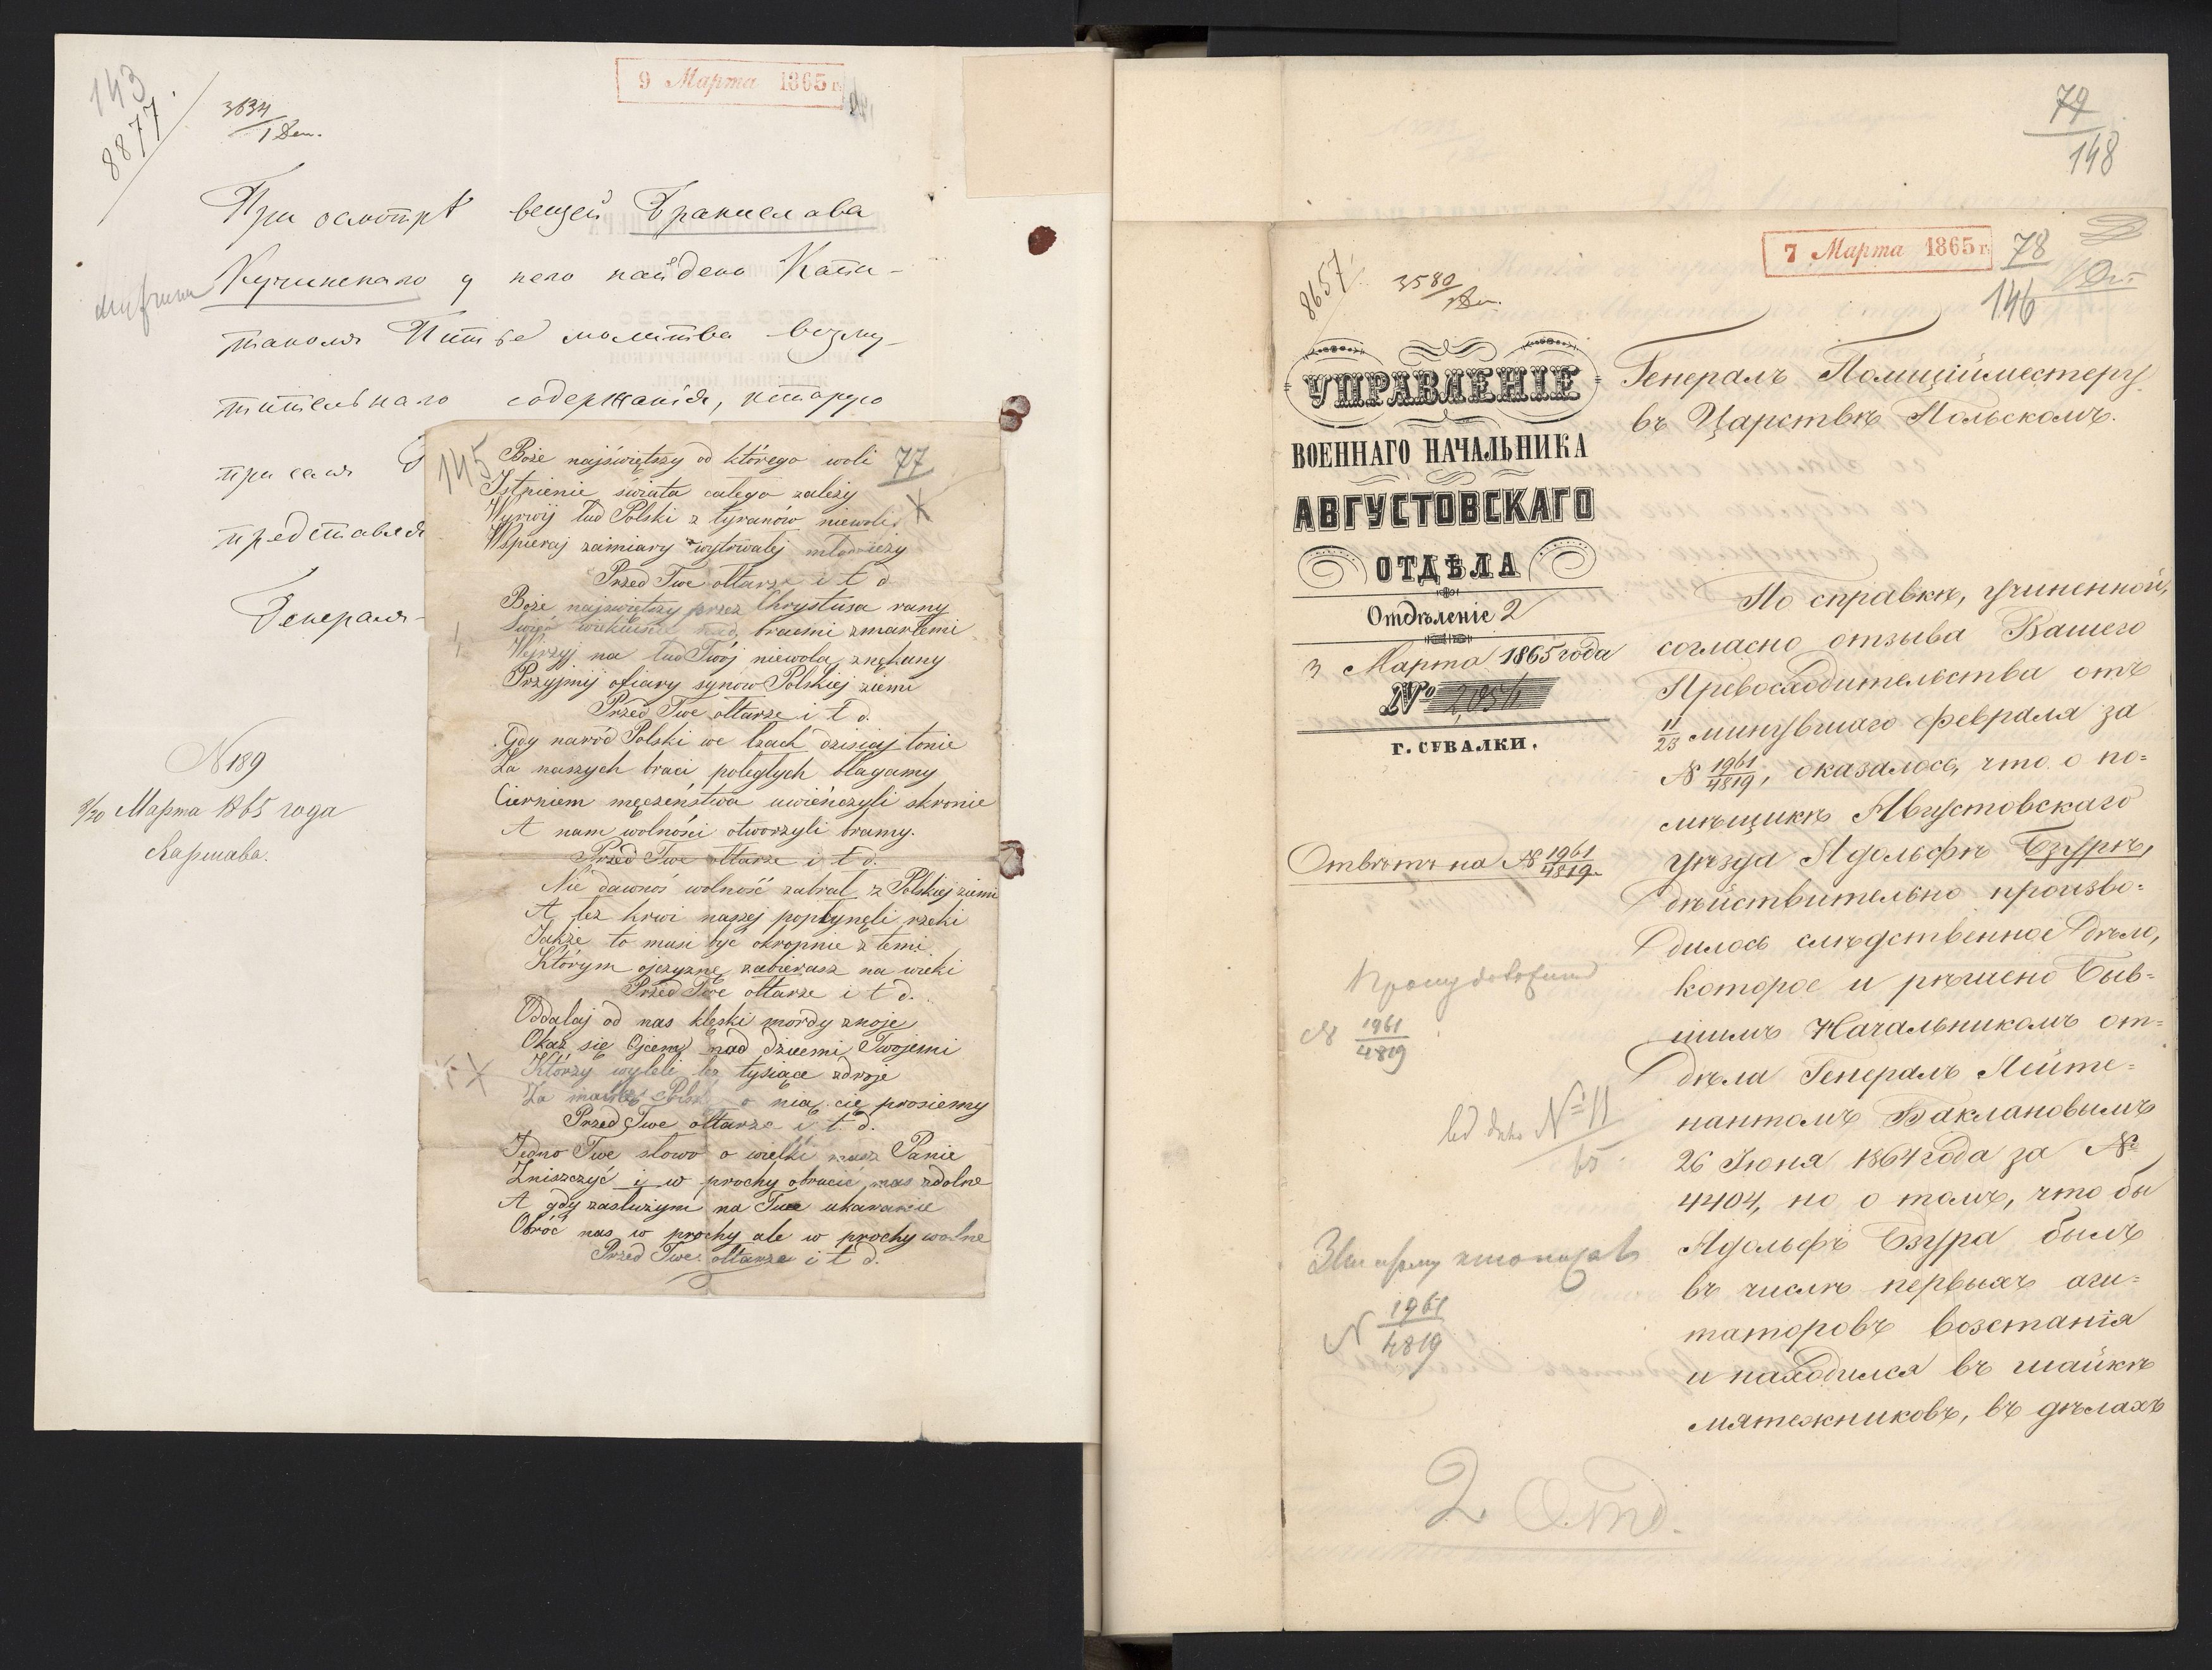 143
8877
3634
1 Деп.
9 Марта 1865 г.
При осмотрѣ вещей Бранислава
Кучинскаго у него найдено Капи-
таномъ Питье молитва возму-
тительнаго содержанія, которую
при семъ
представляя
Генералъ-
N 189
8/20 Марта 1865 года
Варшава.
145
77
Boże najświętszy od którego woli
Istnienie świata całego zależy
Wyrwij lud Polski z tyranów niewoli
Wspieraj zamiary wytrwałej młodzieży
Przed Twe ołtarze i t d
Boże najświętszy przez Chrystusa rany
Swieć wiekuiście nad braćmi zmarłemi
Wejrzyj na lud Twój niewolą znękany
Przyjmij ofiary synów Polskiej ziemi
Przed Twe ołtarze i t d.
Gdy naród Polski we łzach dzisiaj tonie
Za naszych braci poległych błagamy
Cierniem męczeństwa uwieńczyli skronie
A nam wolności otworzyli bramy.
Przed Twe ołtarze i t d.
Nie dawnoś wolność zabrał z Polskiej ziemi
A łez krwi naszej popłynęli rzeki
Jakże to musi być okropnie z temi
Którym ojczyznę zabierasz na wieki
Przed Twe ołtarze i t d.
Oddalaj od nas klęski mordy znoje
Okaż się Ojcem nad dziećmi Twojemi
Którzy wyleli łez tysiące zdroje
Za o nią cię prosiemy
Przed Twe ołtarze i t. d.
Jedno Twe słowo o wielki nasz Panie
Zniszczyć i w prochy obrócić nas zdolne
A gdy zasłużym na Twe ukaranie
Obróć nas w prochy ale w prochy wolne
Przed Twe ołtarze i t d.
79
148
7 Марта 1865 г.
78
146
8657
3580
1 Деп.
УПРАВЛЕНІЕ
ВОЕННАГО НАЧАЛЬНИКА
АВГУСТОВСКАГО
ОТДѢЛА
Отдѣленіе 2
3 Марта 1865 года
№ 2,054
Г. СУВАЛКИ.
Генералъ Полиціймейстеру
въ Царствѣ Польскомъ.
По справкѣ, учиненной,
согласно отзыва Вашего
Превосходительства отъ
11/23 минувшаго февраля за
№ 1961/4819, оказалось, что о по=
мѣщикѣ Августовскаго
уѣзда Адольфѣ Бзурѣ,
дѣйствительно произво=
дилось слѣдственное дѣло,
которое и рѣшено быв=
шимъ Начальникомъ от=
дѣла Генералъ Лейте=
нантомъ Баклановымъ
26 Іюня 1864 года за №
4404, но о томъ, что бы
Адольфъ Бзура былъ
въ числѣ первыхъ аги=
таторовъ возстанія
и находился въ шайкѣ
мятежниковъ, въ дѣлахъ
Отвѣтъ на № 1961/4819
№ 1961/4819
№ 11
65
N 1961/4819
2 Отд.